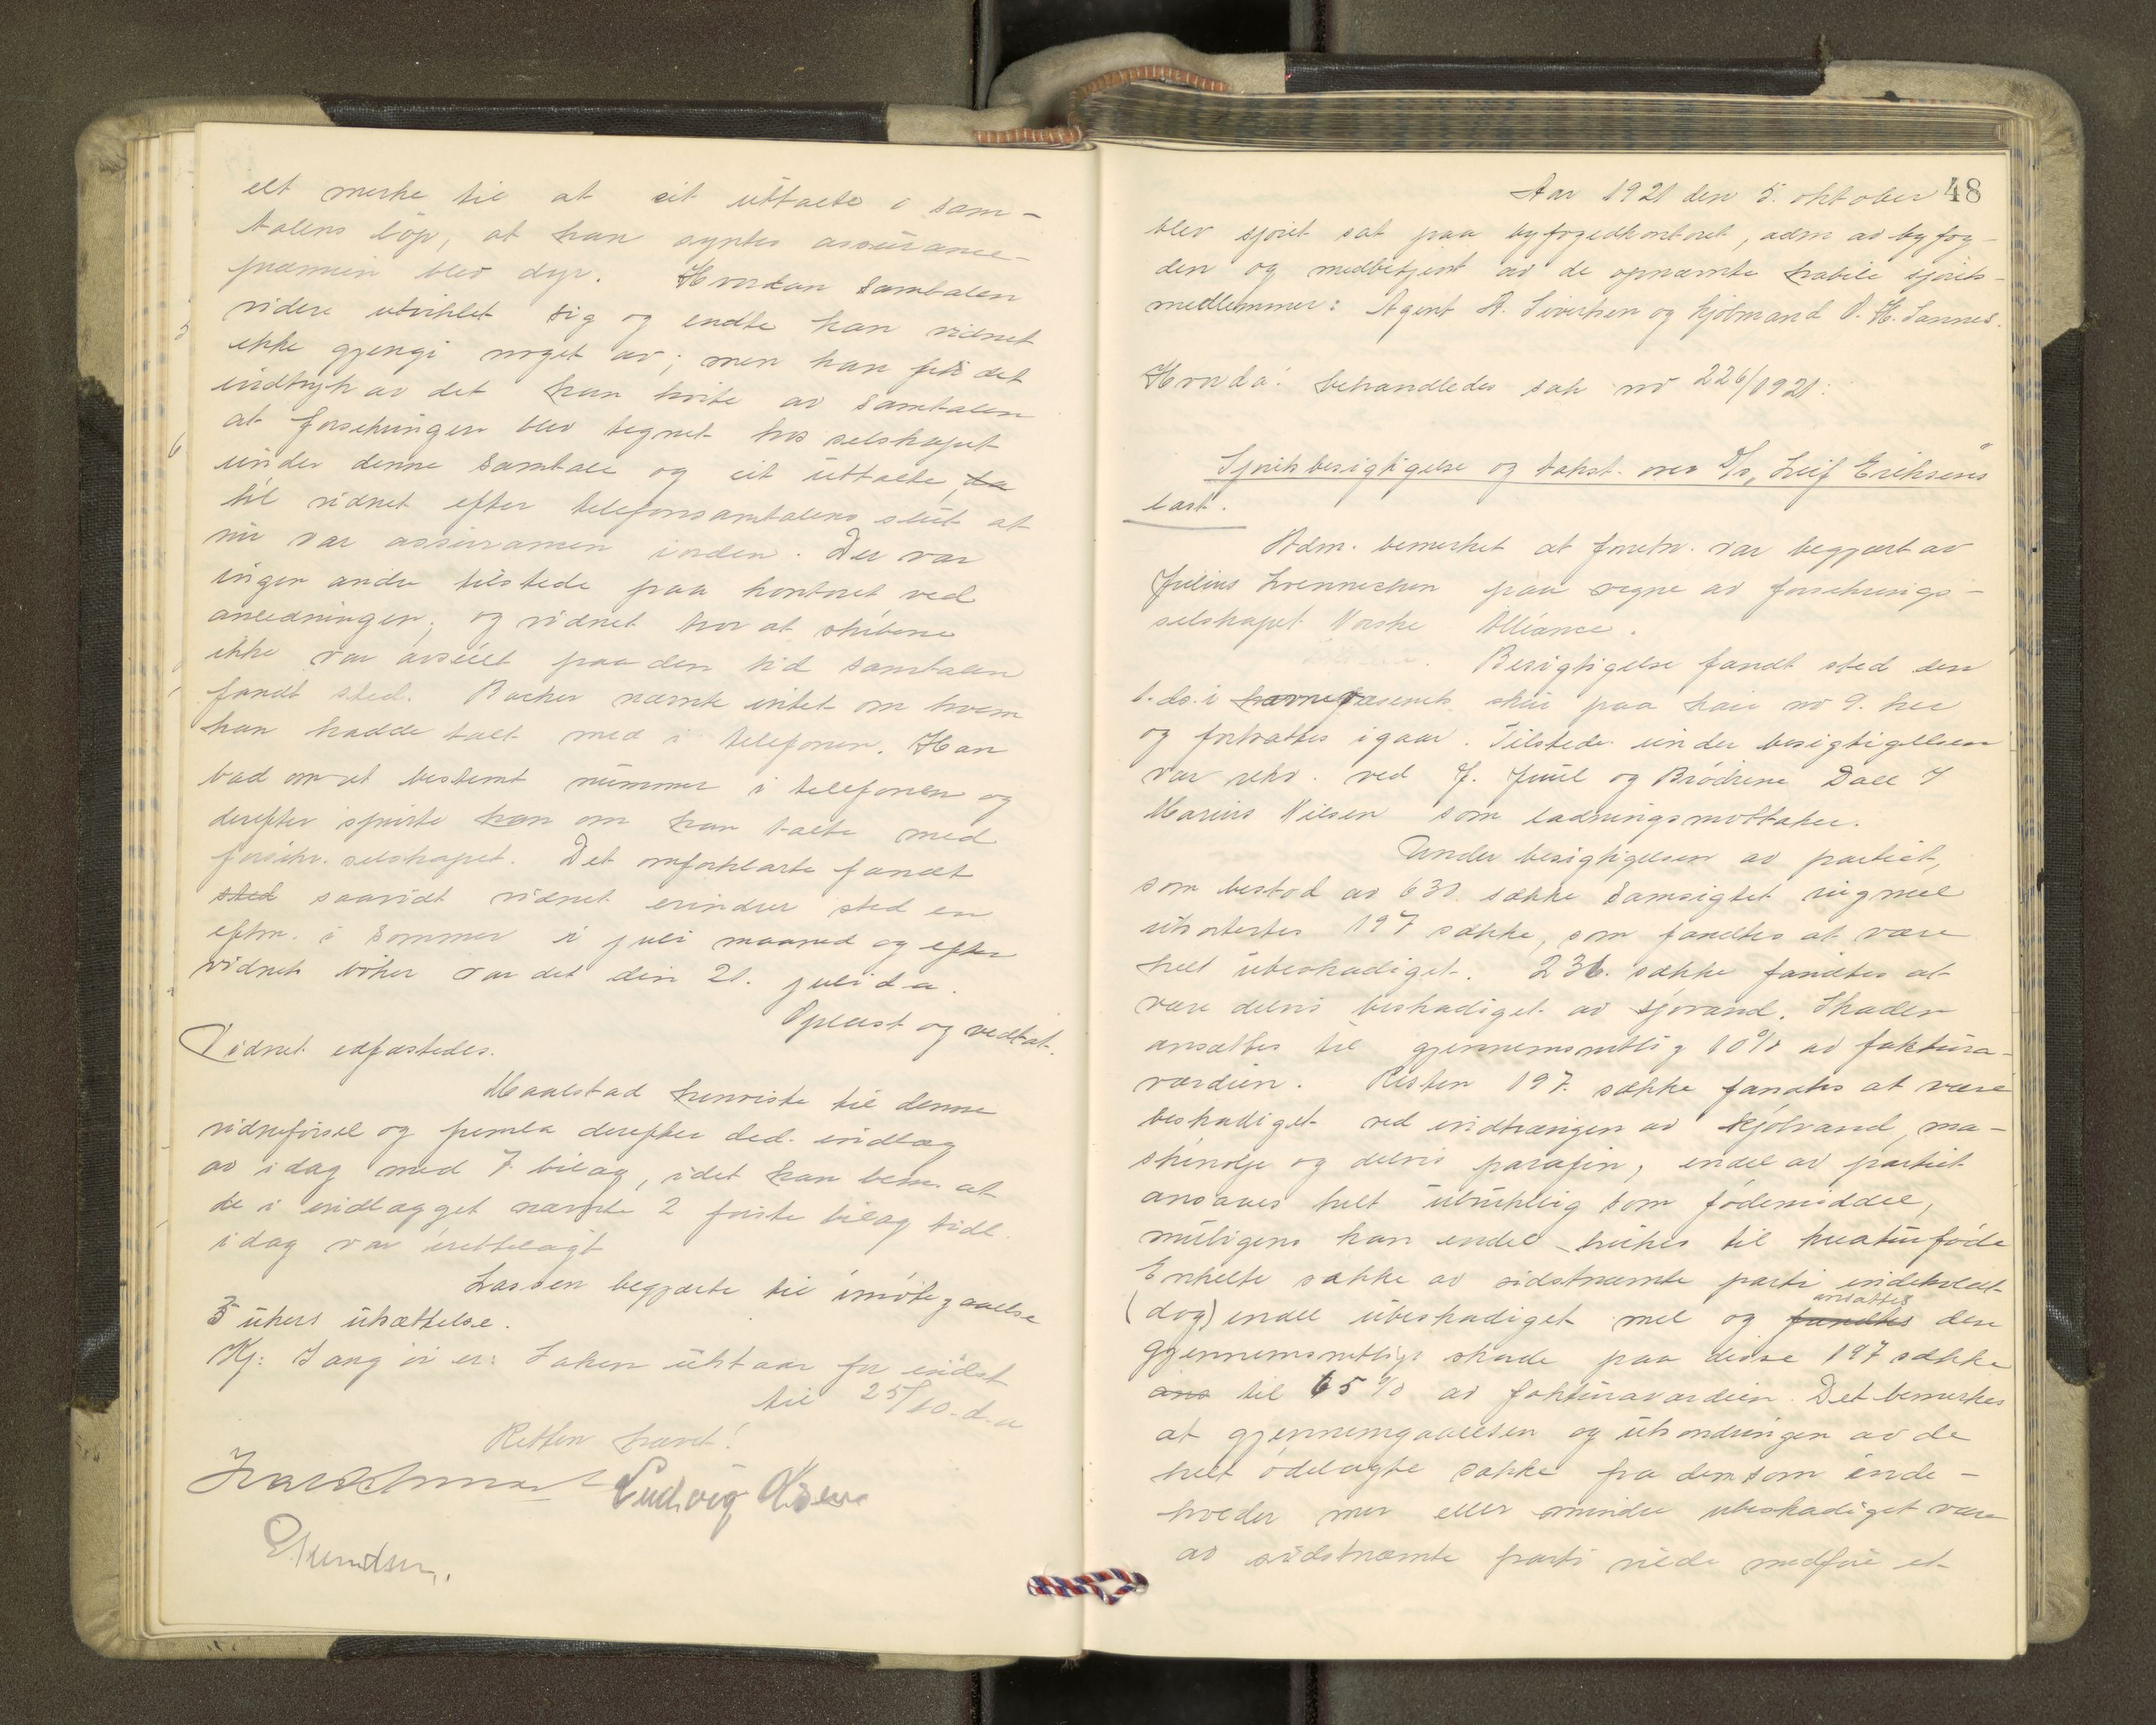 elt merke til at eit uttalte i sam-
talens löp, at han syntes assurance-
præmien blev dyr. Hvordan samtalen
videre utviklet sig og endte kan vidnet
ikke gjengi noget av; men han fik det
indtryk av det han hørte av samtalen
at forsikringen blev tegnet hos selskapet
under denne samtale og eit uttalte, da
til vidnet efter telefonsamtalens slut at
nu var assurancen iorden. Der var
ingen andre tilstede paa kontoret ved
anledningen; og vidnet tror at skibene
ikke var avseilt paa den tid samtalen
fandt sted. Backer nævnte intet om hvem
han hadde talt med i telefonen. Han
bad om et bestemt nummer i telefonen og
derefter spurte han om han talte med
forsikr. selskapet. Det omforklarte fandt
sted saavidt vidnet erindrer sted en
eftm. i sommer i juli maaned og efter
vidnets böker var det den 21. juli d.a.
Oplæst og vedtat.
Vidnet edfæstedes.
Maalstad henviste til denne
vidneførsel og freml. derefter ded. indlæg
av idag med 7 bilag, idet han bem. at
de i indlægget nævnte 2 første bilag tidl.
idag var irettelagt
Lassen begjærte til imötegaaelse
3 ukers utsættelse.
Kj: Saken utstaar for indst
til 25/10. d.a
Retten hævet!
Ludvig Olsen
E. Knudsen.
48
Aar 1921 den 5. oktober
blev sjöret sat paa byfogedkontoret, adm av byfog-
den og medbetjent av de opnævnte habile sjörets-
medlemmer: Agent A. Sivertsen og kjöbmand O. H. Sannes.
Hvorda: behandledes sak nr 226/1921:
Sjöretsbesigtigelse og takst over D/s "Leif Eriksens"
last.
Adm. bemerket at forretn. var begjært av
Julius paa vegne av forsikrings-
selskapet Norske Alliance.
Besigtigelse fandt sted den
1. ds. i havnevæsenets skur paa kai nr 9. her
og fortsattes igaar. Tilstede under besigtigelsen
var rekv. ved J. Juul og Brödrene Dall &
Marius Nilsen som ladningsmottaker.
Under besigtigelsen av partiet,
som bestod av 630 sække samsigtet rugmel
utsortertes 197 sække, som fandtes at være
helt ubeskadiget. 236. sække fandtes at
være delvis beskadiget av sjövand. Skaden
ansættes til gjennemsnitlig 10% av faktura-
værdien. Resten 197. sække fandtes at være
beskadiget ved indtrængen av kjölvand, ma-
skinolje og delvis parafin, endel av partiet
ansaaes helt ubrukelig som fødemiddel,
muligens kan endel brukes til kreaturföde
Enkelte sække av sidstnævnte parti indeholdt
(dog) endel ubeskadiget mel og fandtes ansattes den
gjennemsnitlige skade paa disse 197 sække
ans til 65% av fakturaværdien. Det bemerkes
at gjennemgaaelsen og utsondringen av de
helt ödelagte sække fra dem som inde-
holder mer eller mindre ubeskadiget vare
av sidstnævnte parti vilde medføre et